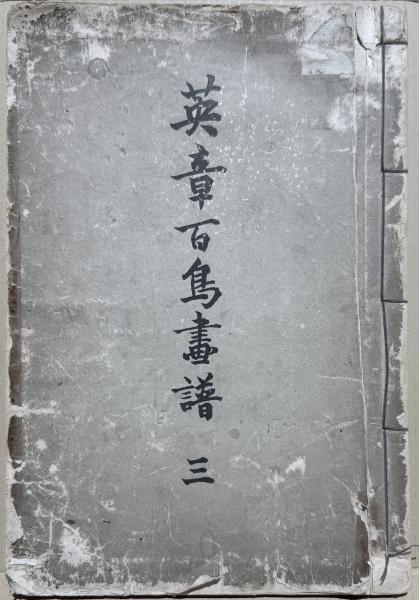 英章百鳥畫譜 三